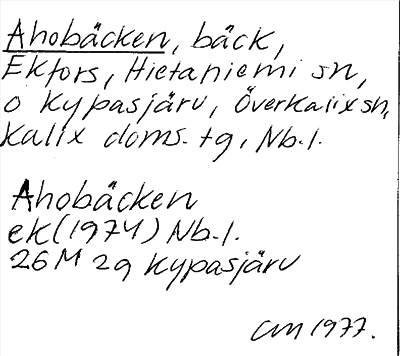 Ahobäcken, bäck,
Ekfors, Hietaniemi sn,
o Kypasjärv, Överkalix sn,
Kalix doms. tg, Nb. l.
Ahobäcken
ek (1974) Nb. l.
26M 2g Kypasjärv
CM 1977.